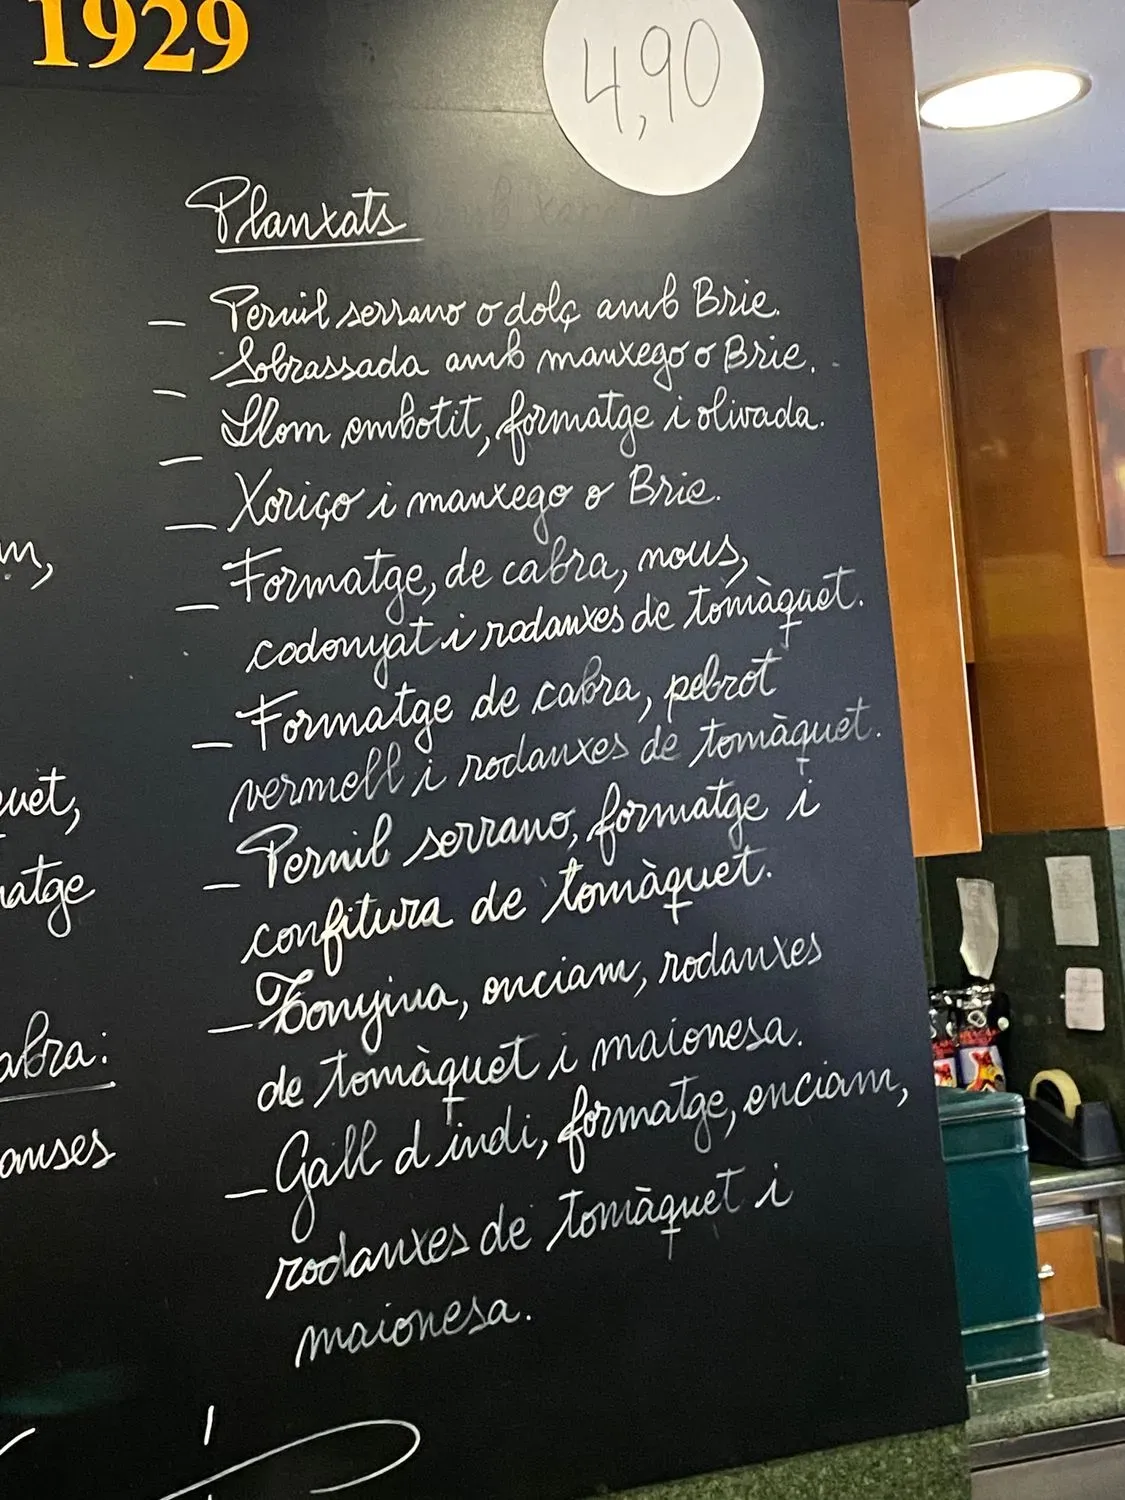 1929
4,90
Planxats
— Pernil serrano o dolç amb Brie.
— Sobrassada amb manxego o Brie.
— Llom embotit, formatge i olivada.
— Xoriço i manxego o Brie.
— Formatge, de cabra, nous,
codonyat i rodanxes de tomàquet.
— Formatge de cabra, pebrot
vermell i rodanxes de tomàquet.
— Pernil serrano, formatge i
confitura de tomàquet.
— Tonyina, enciam, rodanxes
de tomàquet i maionesa.
— Gall d indi, formatge, enciam,
rodanxes de tomàquet i
maionesa.